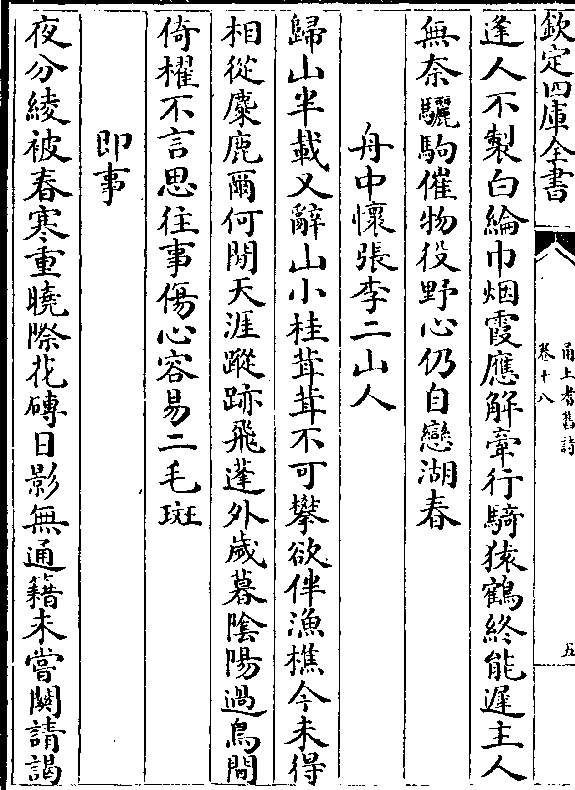 欽定四庫全書
甬上耆舊詩
卷十八
五
逢人不製白綸巾烟霞應解牽行騎猿鶴終能遲主人
無奈驪駒催物役野心仍自戀湖春
舟中懷張李二山人
歸山半載又辭山小桂茸茸不可攀欲伴漁樵今未得
相從麋鹿爾何閒天涯蹤跡飛蓬外歲暮陰陽過鳥間
倚櫂不言思往事傷心容易二毛斑
即事
夜分綾被春寒重曉際花磚日影無通籍未嘗闕請謁